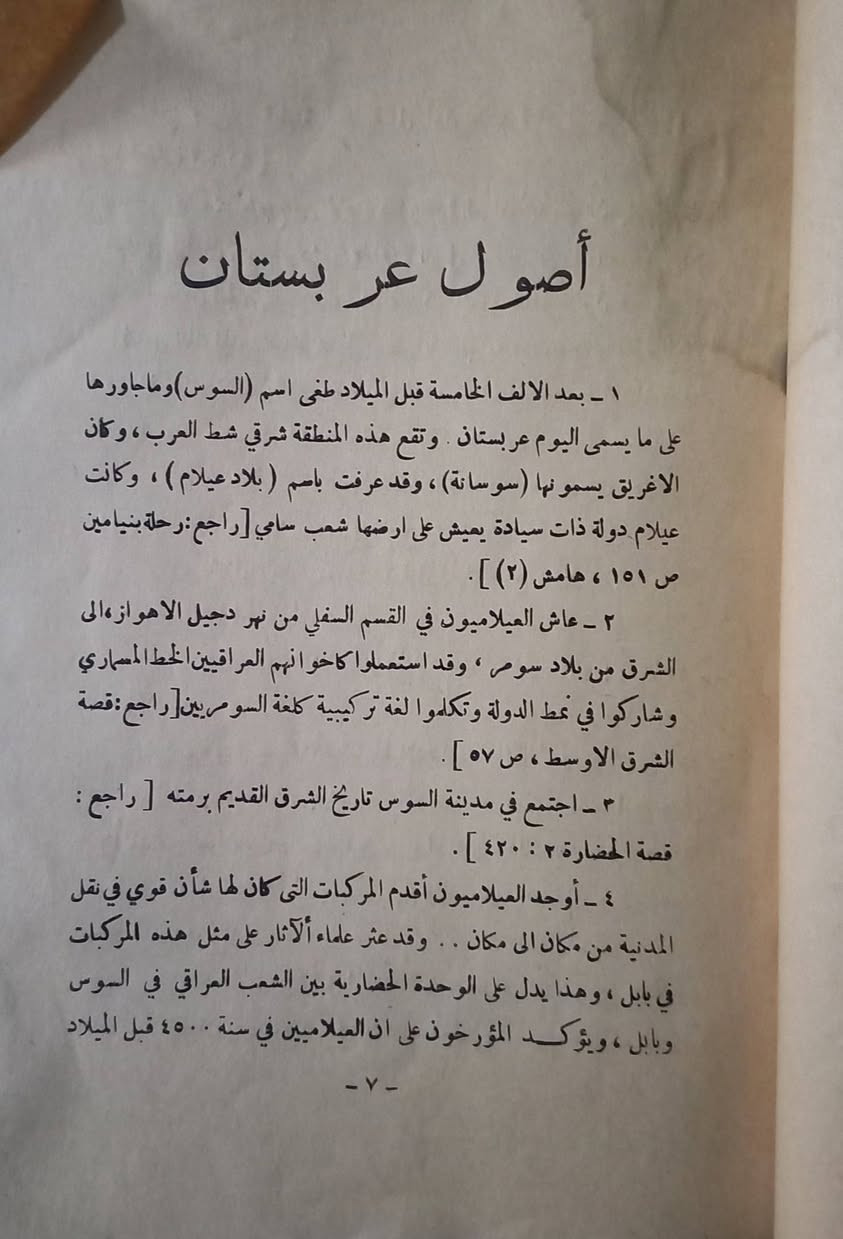 أصول عربستان
١ ـ بعد الالف الخامسة قبل الميلاد طغى اسم (السوس) وماجاورها
على ما يسمى اليوم عربستان . وتقع هذه المنطقة شرقي شط العرب ، وكان
الاغريق يسمونها (سوسانة) ، وقد عرفت باسم ( بلاد عيلام ) ، وكانت
عيلام دولة ذات سيادة يعيش على ارضها شعب سامي [ راجع : رحلة بنيامين
ص ١٥١ ، هامش (٢) ] .
٢ ـ عاش العيلاميون في القسم السفلي من نهر دجيل الاهواز ، الى
الشرق من بلاد سومر ، وقد استعملوا كاخوانهم العراقيين الخط المسماري
وشاركوا في نمط الدولة وتكلموا لغة تركيبية كلغة السومريين [ راجع : قصة
الشرق الاوسط ، ص ٥٧ ] .
٣ ـ اجتمع في مدينة السوس تاريخ الشرق القديم برمته [ راجع :
قصة الحضارة ٢ : ٤٢٠ ] .
٤ ـ أوجد العيلاميون أقدم المركبات التى كان لها شأن قوي في نقل
المدنية من مكان الى مكان . . وقد عثر علماء ألآثار على مثل هذه المركبات
في بابل ، وهذا يدل على الوحدة الحضارية بين الشعب العراقي في السوس
وبابل ، ويؤكـــد المؤرخون على ان العيلاميين في سنة ٤٥٠٠ قبل الميلاد
ـ ٧ ـ